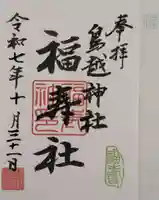 奉拝
鳥越神社
福寿社
令和七年十月三十一日